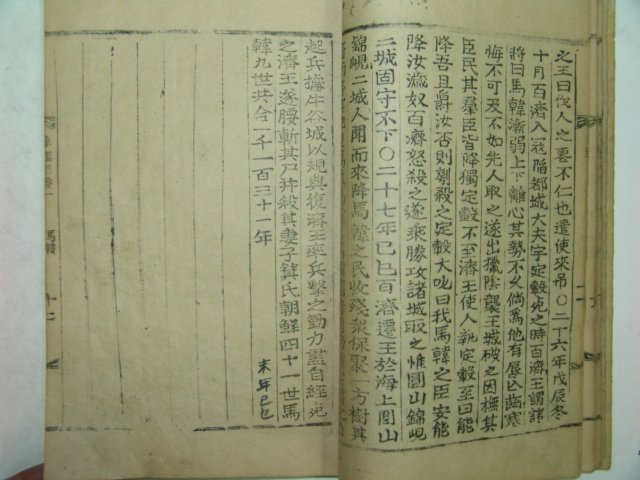 之王曰伐人之喪不仁也遣使來吊〇二十六年戊辰冬
十月百濟入寇陷都城大夫字定轂死之時百濟王謂諸
將曰馬韓漸弱上下離心其勢不久倘爲他有唇亡齒寒
悔不可及不如先人取之遂出獵陰襲王城破之因撫其
臣民其羣臣皆降獨定轂不至濟王使人執定轂至曰能
降吾且爵汝否則剔殺之定轂大叱曰我馬韓之臣安能
降汝瀛奴百濟怒殺之遂乘勝攻諸城取之惟圓山錦峴
二城固守不下〇二十七年己巳百濟遷王於海上圓山
錦峴二城人聞而來降馬韓之民收殘衆保聚一方
起兵據牛谷城以規興復濟王率兵擊之勤力盡自經死
之濟王遂腰斬其尸幷殺其妻子箕氏朝鮮四十一世馬
韓九世共合一千一百三十一年
末年己巳
馬韓